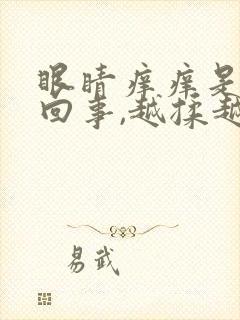 眼睛痒痒是
回事,越揉越
易武